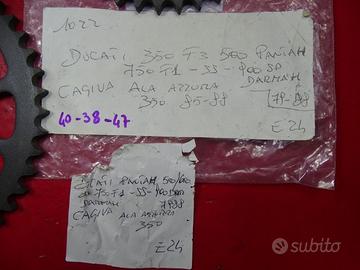 1022
DUCATI 350 F3 500 PANTAH
750 F1 - SS - 900 SD
DARMAH
CAGIVA ALA AZZURA
350 85-88
79-88
40-38-47
E24
DUCATI PANTAH 500/600
750 F1 - SS - 900
DARMAH 79 88
CAGIVA ALA AZZURRA
350
E24
subito